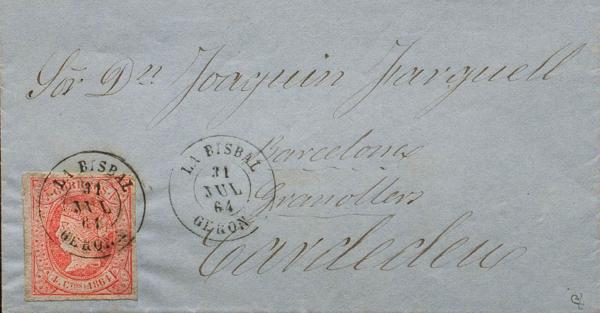 Sor Dn Joaquin Farguell
Barcelona
Granollers
Cardedeu
LA BISBAL
31
JUL
64
GERON
LA BISBAL
31
JUL
64
GERON
CORREOS
4 CTOS 1864